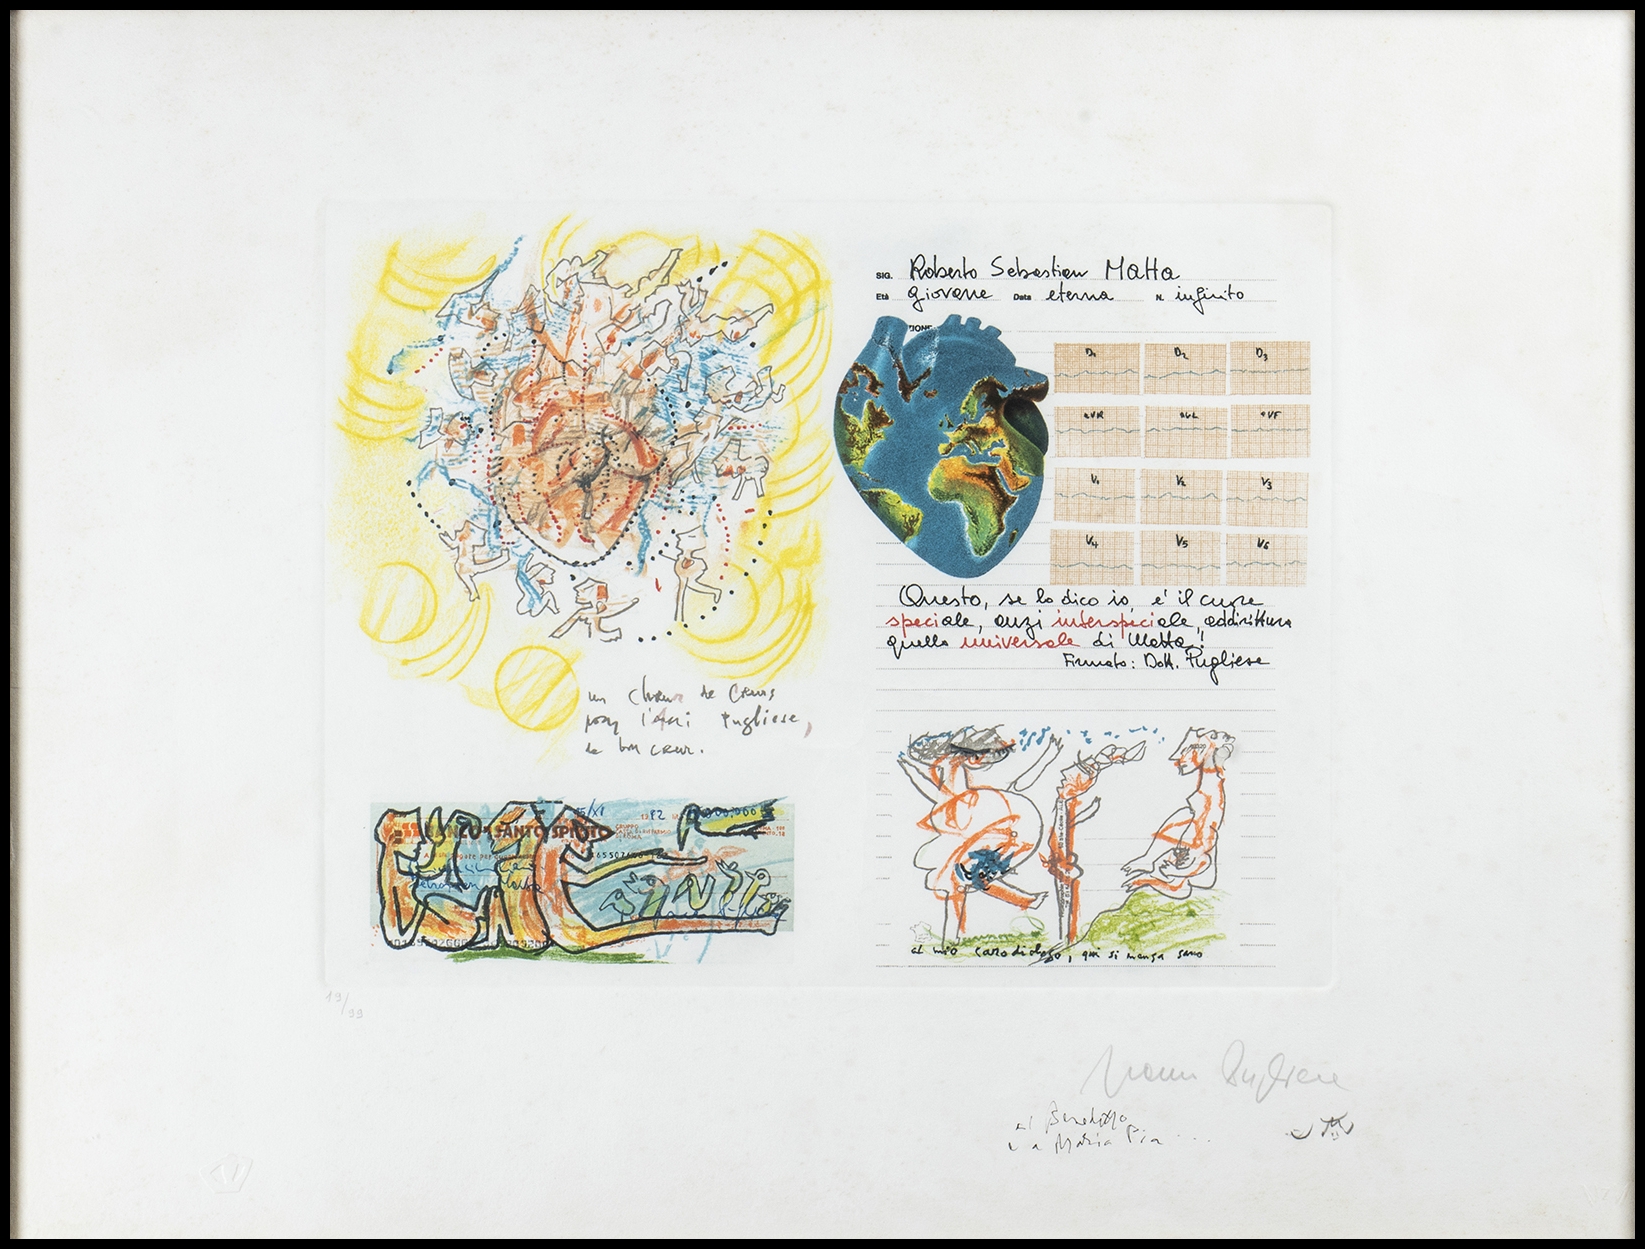 SIG. Roberto Sebastian Matta
Età giovane Data eterna N. infinito
ZIONE
D1 D2 D3
aVR aVL aVF
V1 V2 V3
V4 V5 V6
Questo, se lo dico io, e' il cuore
speciale, anzi interspeciale, addirittura
quello universale di Matta!
Firmato: Dott. Pugliese
un chœur de cœurs
pour l'ami Pugliese,
de bon cœur.
BANCO SANTO SPIRITO
al mio, qui si mangia sano
19/99
al Benedetto
e a Maria Pia ....